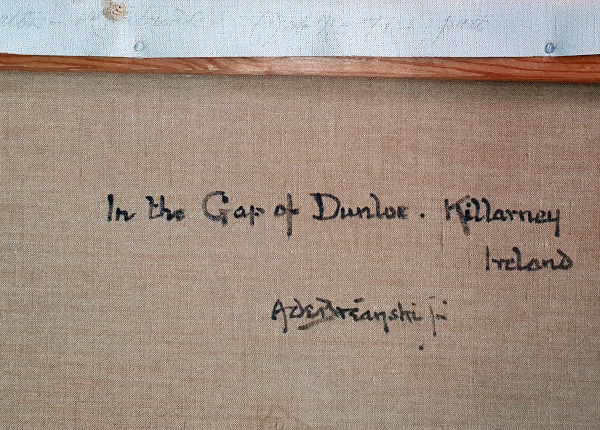 In the Gap of Dunloe. Killarney
Ireland
A de Breanski jr